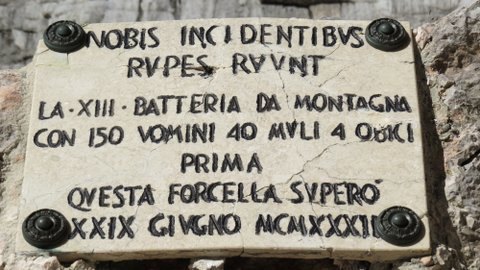 NOBIS INCIDENTIBVS
RVPES RVVNT
LA·XIII·BATTERIA DA MONTAGNA
CON 150 VOMINI 40 MVLI 4 OBICI
PRIMA
QVESTA FORCELLA SVPERO'
XXIX GIVGNO MCMXXXII